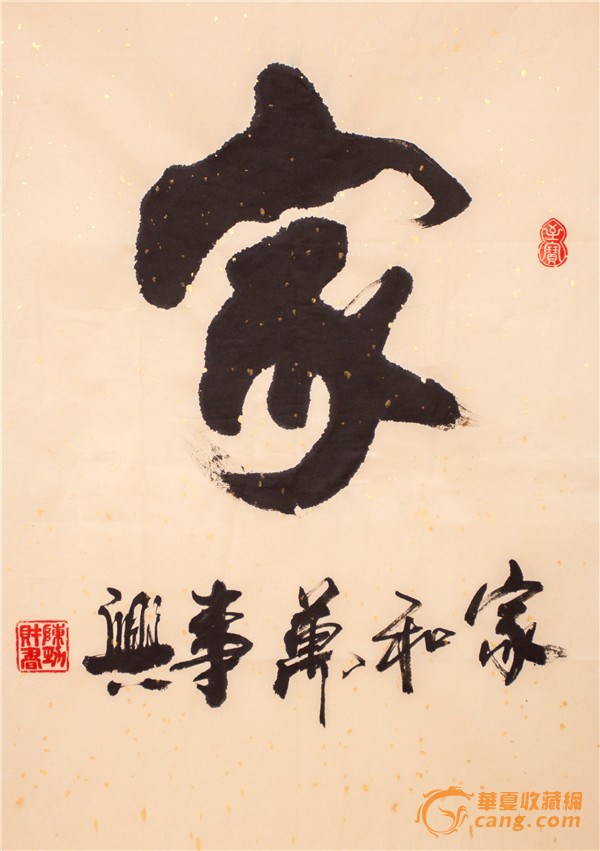 家
家和萬事興
華夏收藏網
cang.com